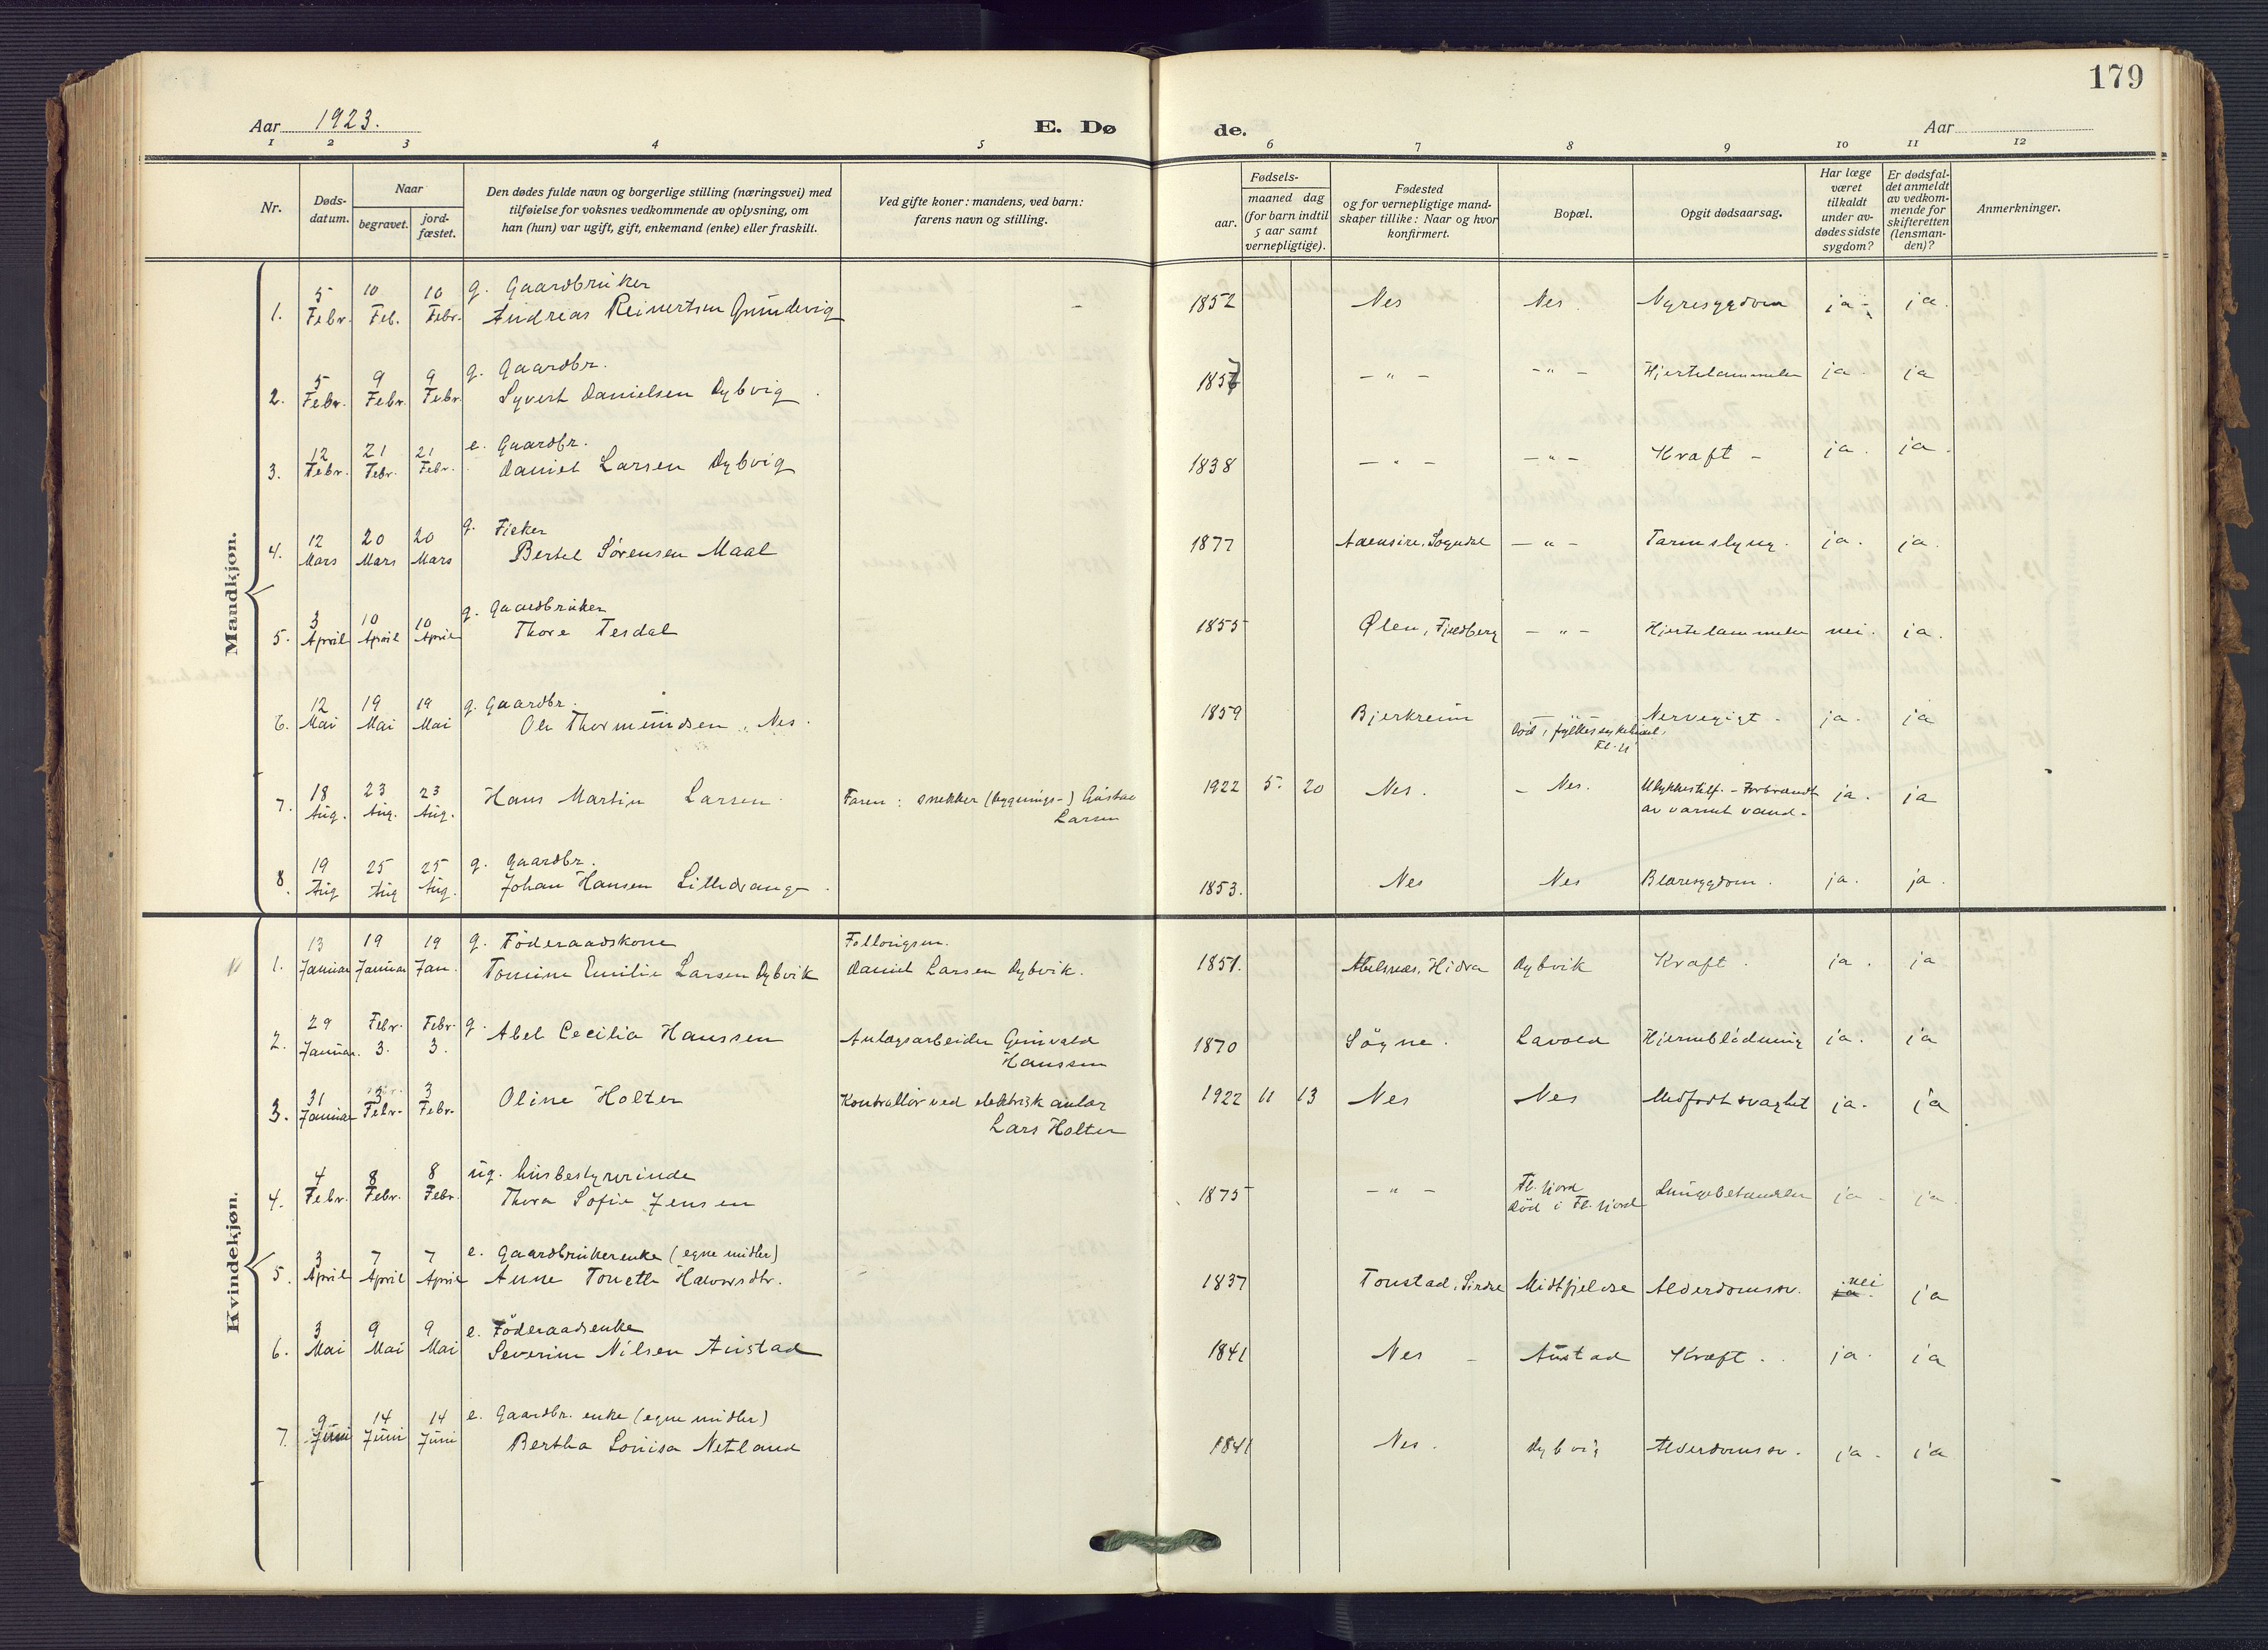 179
Aar 1923.
E. Dø
de.
Aar
1 2 3 4 5 6 7 8 9 10 11 12
Nr.
Døds-
datum.
Naar
begravet.
jord-
fæstet.
Den dødes fulde navn og borgerlige stilling (næringsvei) med
tilføielse for voksnes vedkommende av oplysning, om
han (hun) var ugift, gift, enkemand (enke) eller fraskilt.
Ved gifte koner: mandens, ved barn:
farens navn og stilling.
Fødsels-
aar.
maaned dag
(for barn indtil
5 aar samt
vernepligtige).
Fødested
og for vernepligtige mand-
skaper tillike: Naar og hvor
konfirmert.
Bopæl.
Opgit dødsaarsag.
Har læge
været
tilkaldt
under av-
dødes sidste
sygdom?
Er dødsfal-
det anmeldt
av vedkom-
mende for
skifteretten
(lensman-
den)?
Anmerkninger.
Mandkjøn.
5 10 10 g. Gaardbruker
1. Febr. Feb. Febr. Andreas Reinertsen Grundevig - 1852 Nes Nes Nyresygdom ja - ja.
5 9 9 g. Gaardbr.
2. Febr. Febr. Febr. Syvert Danielsen Dybvig 1857 - " - - " - Hjertelammelse ja. ja
12 21 21 e. Gaardbr.
3. Febr. Febr. Febr. Daniel Larsen Dybvig 1838 - " - - " - Kræft - ja. ja.
12 20 20 g. Fisker
4. Mars Mars Mars Bertel Sørensen Maal 1877 Aaensire, Sogndal - " - Tarmslyng. ja. ja.
3 10 10 g. Gaardbruker
5. April April April Thore Tesdal 1855 Ølen, Fjeldberg - " - Hjertelammelse nei. ja.
12 19 19 g. Gaardbr.
6. Mai Mai Mai Ole Thormundsen Nes. 1859 Bjerkreim Nervegigt - ja. ja
Død i fylkessykehuset,
18 23 23
7. Aug. Aug. Aug. Hans Martin Larsen. Faren: snekker (bygnings-) Gustav 1922 5. 20 Nes. - Nes. Ulykkestilf. - Forbrændt ja. ja
Larsen
av varmt vand -
19 25 25 g. Gaardbr.
8. Aug Aug Aug. Johan Hansen Lilledrange 1853. Nes Nes Blæresygdom. ja. ja.
Kvindekjøn.
13 19 19 g. Föderaadskone
1. Januar Januar Jan. Tomine Emilie Larsen Dybvik Daniel Larsen Dybvik. 1851. Abelsnes, Hidra Dybvik Kræft. ja. ja
29 Febr. Febr. g.
2. Januar. 3. 3. Abel Cecilia Hanssen Anlægsarbeider 1870 Søgne. Lavold Hjerneblødning ja. ja
Hanssen
31 3 3
3. Januar Febr. Febr. Oline Holter Kontrollør ved elektrisk anlæg 1922 11 13 Nes Nes Medfødt svaghet ja. ja
Lars Holter
4 8 8 ug. husbestyrerinde
4. Febr. Febr. Febr. Thora Sofie Jensen 1875 - " - Fl. fjord Lungebetændelse ja - ja
Død i Fl. fjord
3 7 7 e. Gaardbrukerenke (egne midler)
5. April April April Anne Tonette Halvorsdtr. 1837 Tonstad, Sirdal Midtfjeldse Alderdomssv. ja. nei ja
3 9 9 e. Föderaadsenke
6. Mai Mai Mai Severine Nilsen Austad 1841 Nes - Austad Kræft. ja. ja
9 14 14 e. Gaardbr. enke (egne midler)
7. Juni Juni Juni Bertha Lovisa Netland 1841 Nes. Dybvig Alderdomssv. ja. ja